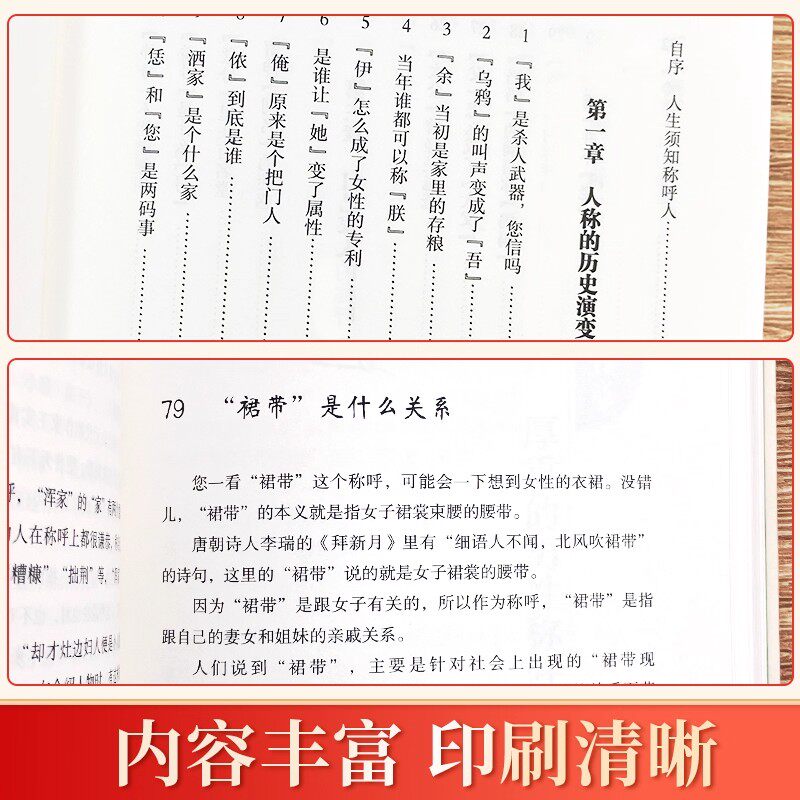 自序 人生须知称呼人……
第一章 人称的历史演变
1 『我』是杀人武器，您信吗……
2 『乌鸦』的叫声变成了『吾』……
3 『余』当初是家里的存粮……
4 当年谁都可以称『朕』……
5 『伊』怎么成了女性的专利……
6 是谁让『她』变了属性……
7 『俺』原来是个把门人……
8 『侬』到底是谁……
『洒家』是个什么家……
『恁』和『您』是两码事……
，“浑家”的“家”
人在称呼上都很谦恭
糟糠”“拙荆”等，
“却才灶边妇人便是
79 “裙带”是什么关系
您一看“裙带”这个称呼，可能会一下想到女性的衣裙。没错
儿，“裙带”的本义就是指女子裙裳束腰的腰带。
唐朝诗人李瑞的《拜新月》里有“细语人不闻，北风吹裙带”
的诗句，这里的“裙带”说的就是女子裙裳的腰带。
因为“裙带”是跟女子有关的，所以作为称呼，“裙带”是指
跟自己的妻女和姐妹的亲戚关系。
人们说到“裙带”，主要是针对社会上出现的“裙带现
内容丰富 印刷清晰